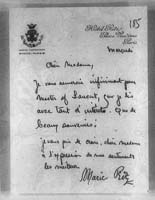 185
Hôtel Ritz
Place Vendôme
Paris
Mercredi
Chère Madame,
Je vous remercie infiniment pour
of Laurent, que j'ai
avec tant d'intérêt. Que de
beaux souvenirs!
Je vous prie de croire, chère madame
à l'expression de mes sentiments
les meilleurs
Marie Ritz